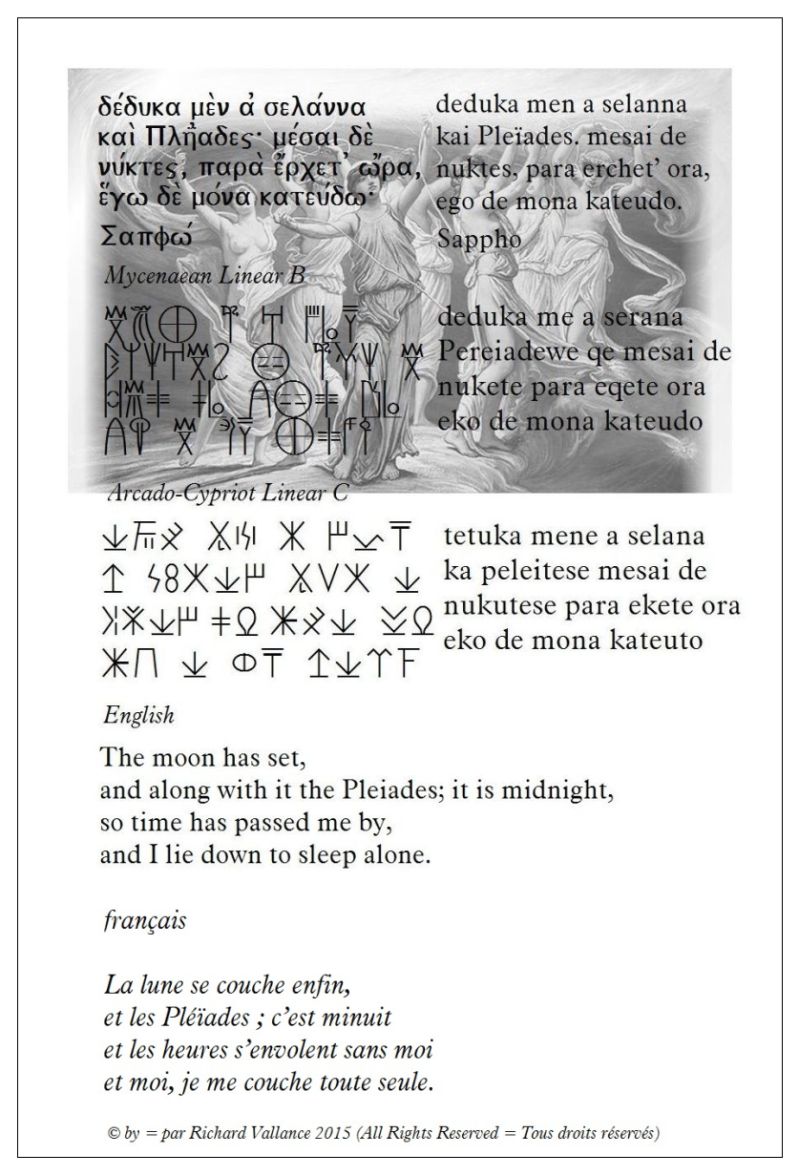 δέδυκα μὲν ἀ σελάννα
καὶ Πλἦαδες· μέσαι δὲ
νύκτες, παρὰ ἔρχετ’ ὤρα,
ἔγω δὲ μόνα κατεύδω·
Σαπφώ
deduka men a selanna
kai Pleïades. mesai de
nuktes, para erchet’ ora,
ego de mona kateudo.
Sappho
Mycenaean Linear B
deduka me a serana
Pereiadewe qe mesai de
nukete para eqete ora
eko de mona kateudo
Arcado-Cypriot Linear C
tetuka mene a selana
ka peleitese mesai de
nukutese para ekete ora
eko de mona kateuto
English
The moon has set,
and along with it the Pleiades; it is midnight,
so time has passed me by,
and I lie down to sleep alone.
français
La lune se couche enfin,
et les Pléïades ; c’est minuit
et les heures s’envolent sans moi
et moi, je me couche toute seule.
© by = par Richard Vallance 2015 (All Rights Reserved = Tous droits réservés)